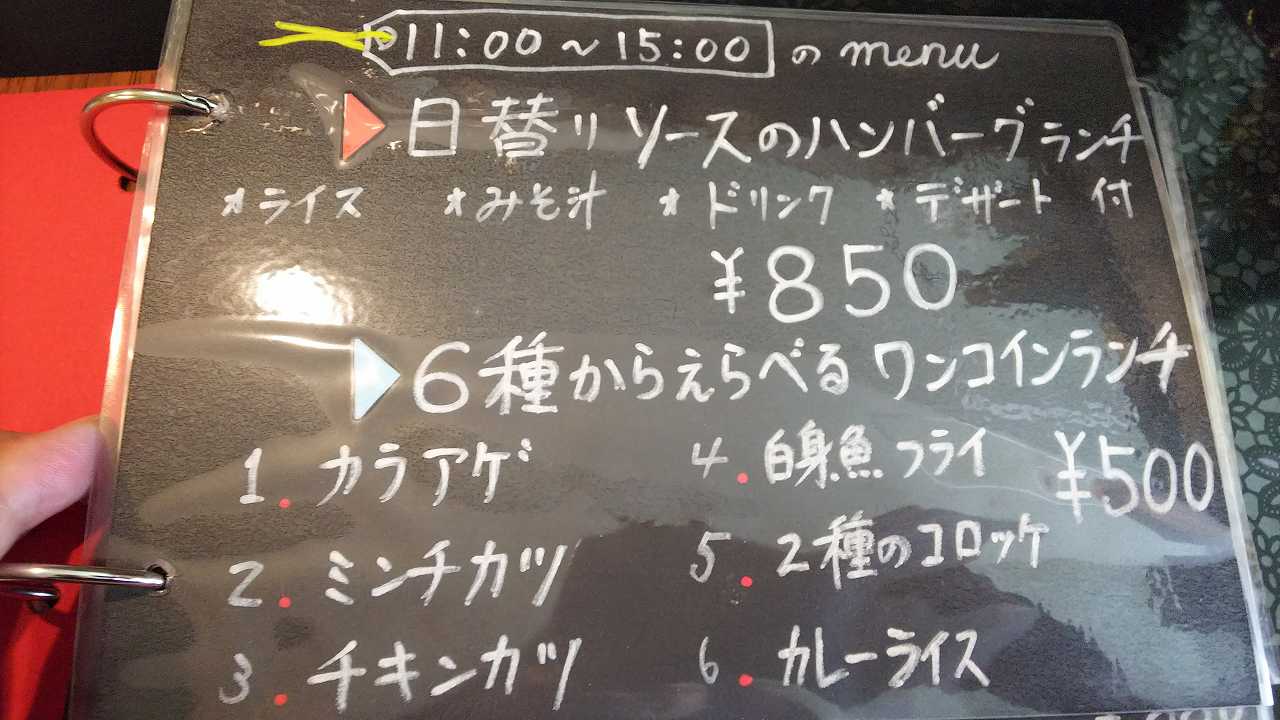 11:00～15:00 の menu
日替りソースのハンバーグランチ
*ライス *みそ汁 *ドリンク *デザート 付
¥850
6種からえらべる ワンコインランチ
¥500
1. カラアゲ
2. ミンチカツ
3. チキンカツ
4. 白身魚フライ
5. 2種のコロッケ
6. カレーライス